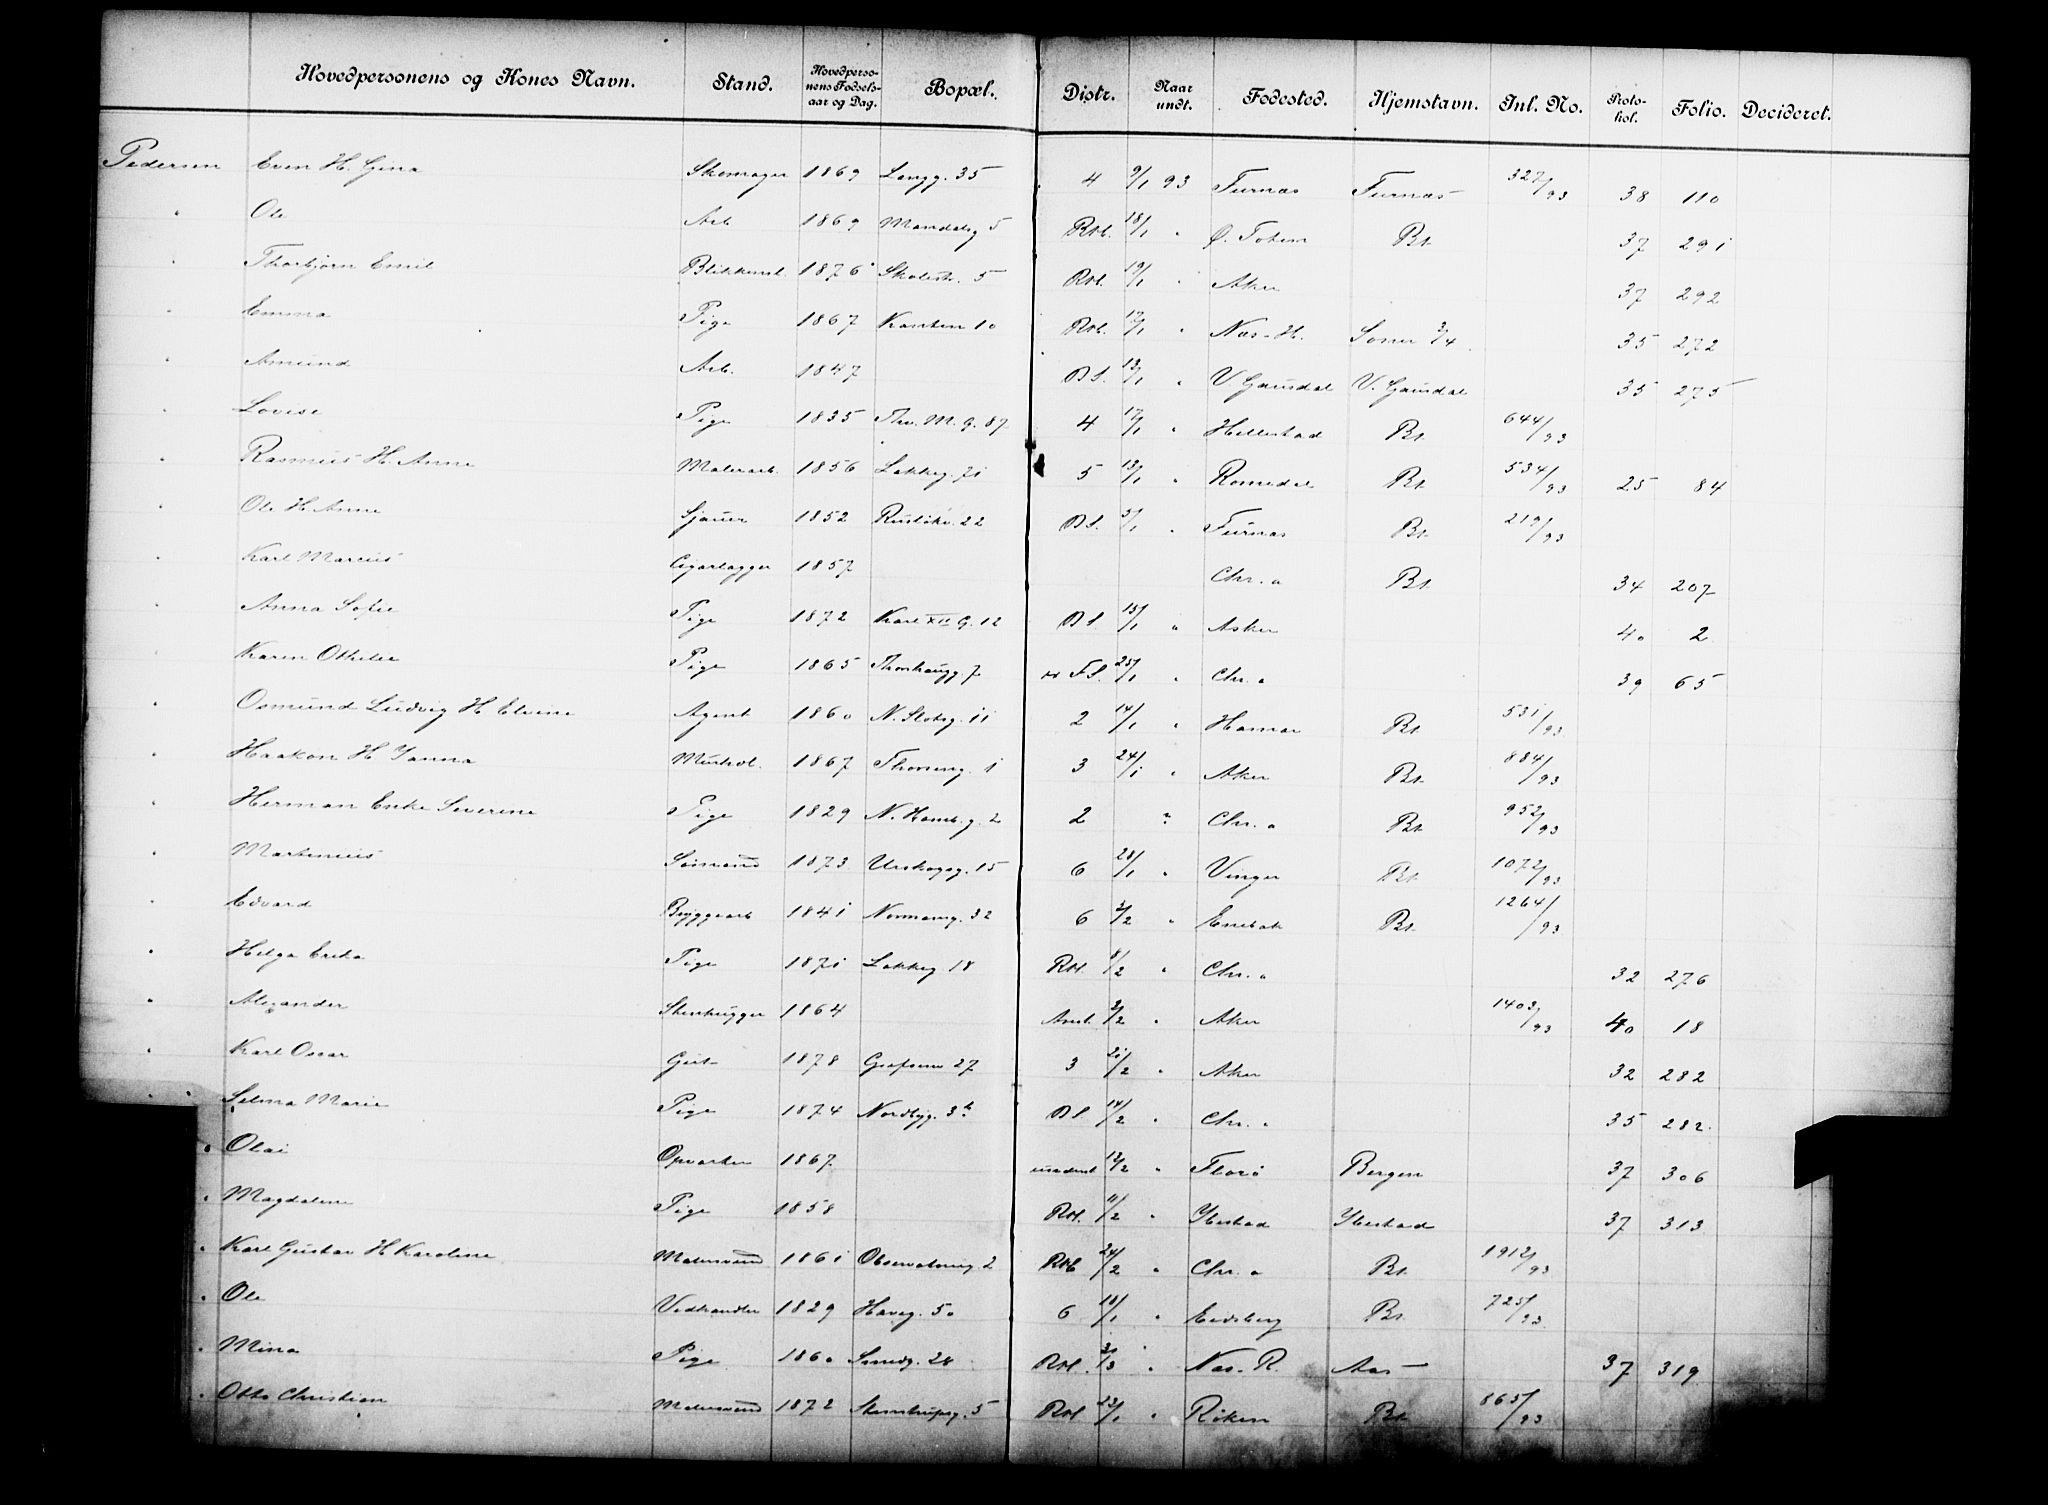 Hovedpersonens og Kones Navn. Stand. Hovedpersonens Fødselsaar og Dag. Bopæl. Distr. Naar undt. Fødested. Hjemstavn. Inl. No. Protokol. Folio. Decideret.
Pedersen Even H. Gina Skomager 1869 Langg. 35 4 9/1 93 Furnæs Furnæs 327/93 38 110
" Ole Arb. 1869 Mandalsg 5 Rtl. 18/1 " Ø. Toten Bt. 37 291
" Thorbjørn Emil Blikkensl. 1876 Skolestr. 5 Rtl. 19/1 " Aker 37 292
" Emma Pige 1867 Kanten 10 Rtl. 12/1 " Næs-H. 35 272
" Amund Arb. 1847 Bl. 13/1 " V. Gausdal V. Gausdal 35 275
" Lovise Pige 1835 Thv. M. G. 87 4 17/1 " Hillestad Bt. 644/93
" Rasmus H. Anne Malerarb. 1856 Lakkeg. 71 5 13/1 " Romedal Bt. 534/93 25 84
" Ole H. Anne Sjauer 1852 Rusløkv. 22 Bl. 5/1 " Furnæs Bt. 219/93
" Karl Marcus Cigarlagger 1857 Chr.a Bt. 34 207
" Anna Sofie Pige 1872 Karl XII G. 12 Bl. 15/1 " Asker 40 2
" Karen Othilie Pige 1865 Thorshaugg. 7 Fl. 25/1 " Chr.a 39 65
" Osmund Ludvig H. Elvine Agent 1860 N. Slotsg. 11 2 14/1 " Hamar Bt. 531/93
" Haakon H. Janna Murhdl. 1867 Thorveg. 1 3 24/1 " Aker Bt. 884/93
" Herman Enke Severine Pige 1829 N. Hamb. g. 2 2 " Chr.a Bt. 952/93
" Martinius Sømand 1873 Urskogsg. 15 6 28/1 " Vinger Bt. 1072/93
" Edvard Bryggearb 1841 Normannsg. 32 6 2/2 " Enebak Bt. 1264/93
" Helga Erika Pige 1871 Lakkeg 18 Rtl. 8/2 " Chr.a 32 276
" Alexander Stenhugger 1864 2/2 " Aker 1403/93 40 18
" Karl Oscar Gut 1878 Grefsenv 27 3 21/2 " Aker 32 282
" Selma Marie Pige 1874 Nordbyg. 3b Bl. 14/2 " Chr.a 35 282
" Olai Opvarter 1867 12/2 " Florø Bergen 37 306
" Magdalene Pige 1858 Rtl. 11/2 " Ibestad Ibestad 37 313
" Karl Gustav H Karoline Malersvend 1861 Observatorieg. 2 Rtl 24/2 " Chr.a Bt. 1912/93
" Ole Vedhandler 1829 Haveg. 50 6 18/1 " Eidsberg Bt. 725/93
" Mina Pige 1860 Smedg. 24 Rtl. " Næs. R. Aas 37 319
" Otto Christian Malersvend 1872 Stenstrupsg. 5 Rtl 23/1 " Røken Bt 865/93